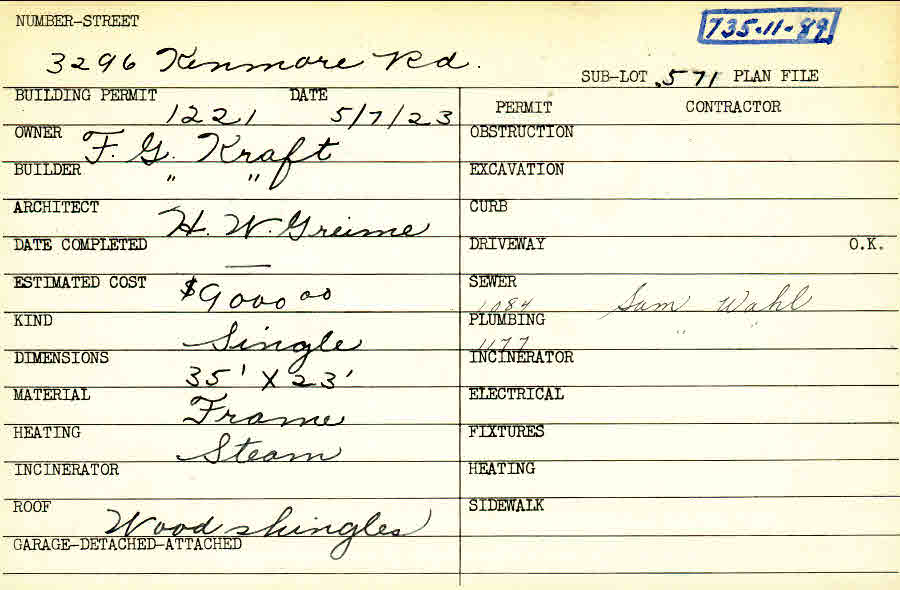 NUMBER-STREET
735-11-89
3296 Kenmore Rd.
SUB-LOT .571 PLAN FILE
BUILDING PERMIT 1221 DATE 5/7/23
PERMIT CONTRACTOR
OWNER F. G. Kraft
OBSTRUCTION
BUILDER " "
EXCAVATION
ARCHITECT H. W. Greime
CURB
DATE COMPLETED —
DRIVEWAY O.K.
ESTIMATED COST $9000.00
SEWER 1084 Sam Wahl
KIND Single
PLUMBING 1177 " "
DIMENSIONS 35' X 23'
INCINERATOR
MATERIAL Frame
ELECTRICAL
HEATING Steam
FIXTURES
INCINERATOR
HEATING
ROOF Wood shingles
SIDEWALK
GARAGE-DETACHED-ATTACHED